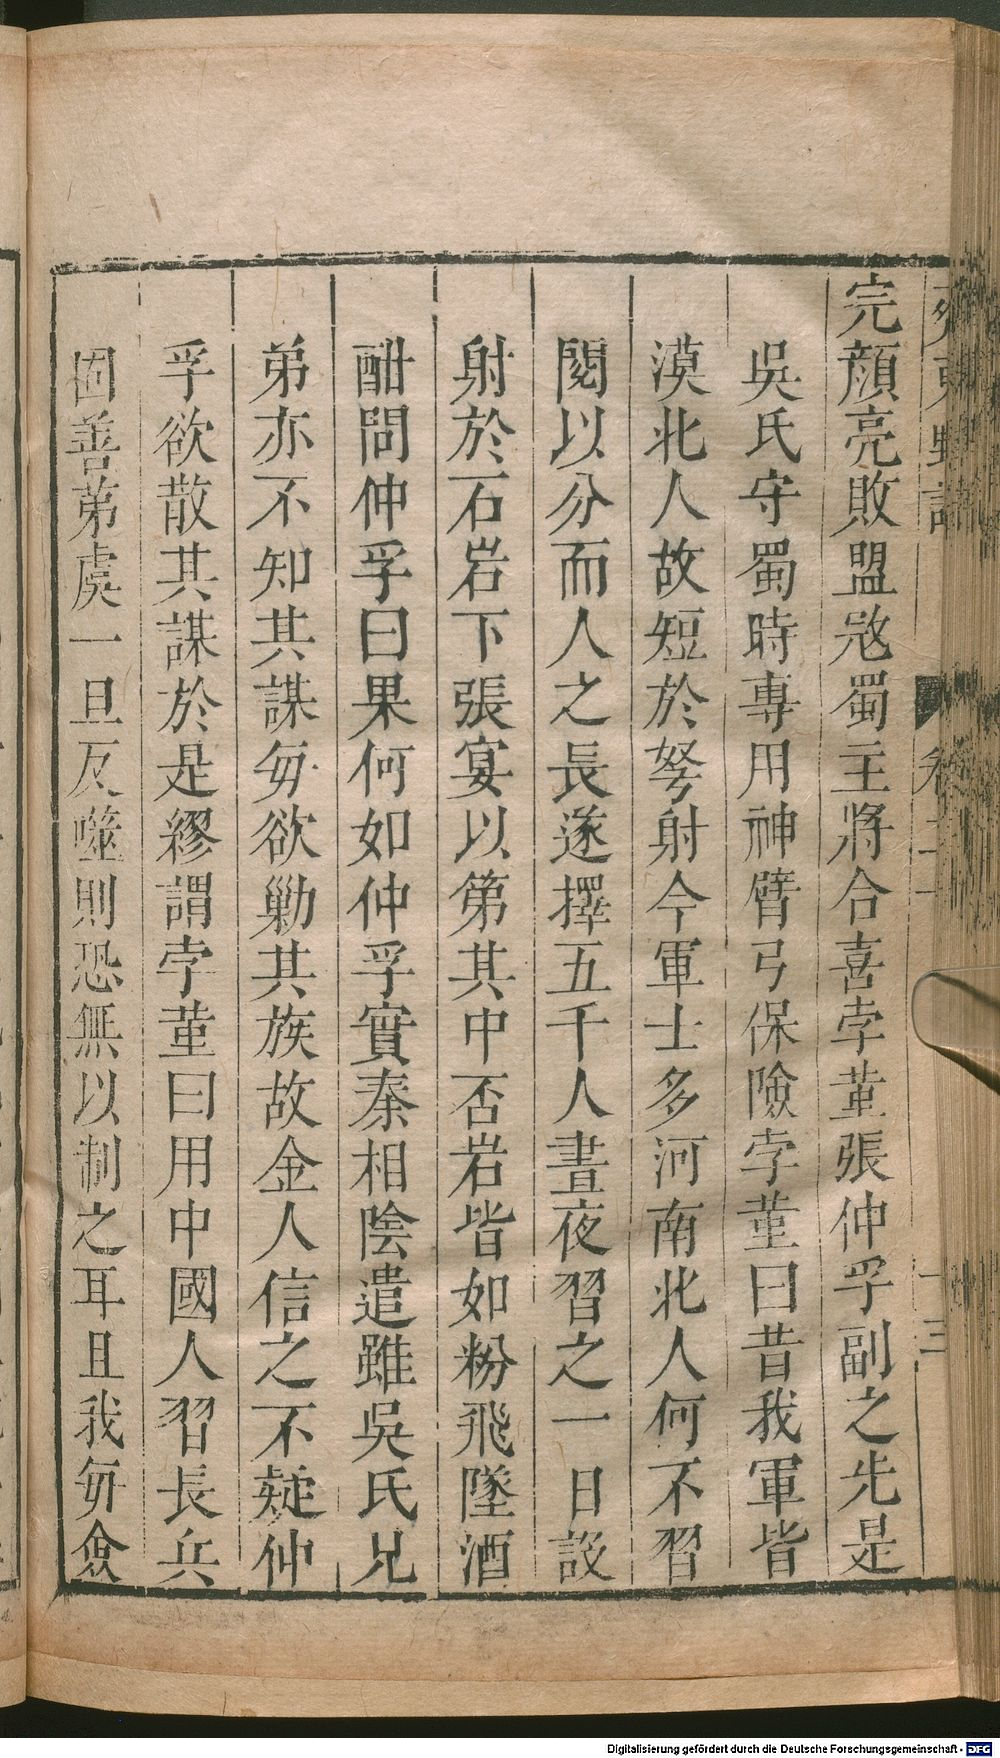 完顔亮敗盟㓂蜀主將合喜孛菫張仲孚副之先是
吳氏守蜀時專用神臂弓保險孛菫曰昔我軍皆
漠北人故短於弩射今軍士多河南北人何不習
閱以分而人之長遂擇五千人晝夜習之一日設
射於石岩下張宴以第其中否岩皆如粉飛墜酒
酣問仲孚曰果何如仲孚實秦相陰遣雖吳氏兄
弟亦不知其謀毎欲勦其族故金人信之不疑仲
孚欲散其謀於是繆謂孛菫曰用中國人習長兵
固善苐虞一旦反噬則恐無以制之耳且我毎僉
齊東野語
卷二十
十三
Digitalisierung gefördert durch die Deutsche Forschungsgemeinschaft - DFG